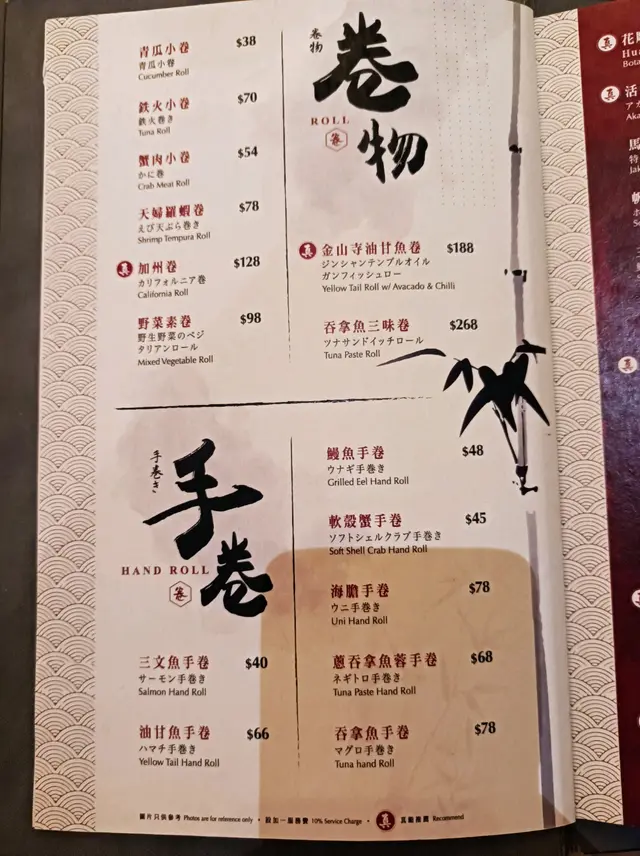 青瓜小卷 $38
青瓜小卷
Cucumber Roll
鉄火小卷 $70
鉄火巻き
Tuna Roll
蟹肉小卷 $54
かに巻
Crab Meat Roll
天婦羅蝦卷 $78
えび天ぷら巻き
Shrimp Tempura Roll
真 加州卷 $128
カリフォルニア巻
California Roll
野菜素卷 $98
野生野菜のベジ
タリアンロール
Mixed Vegetable Roll
卷物
巻物
ROLL
卷
真 金山寺油甘魚卷 $188
ジンシャンテンプルオイル
ガンフィッシュロー
Yellow Tail Roll w/ Avacado & Chilli
吞拿魚三味卷 $268
ツナサンドイッチロール
Tuna Paste Roll
手巻き
手卷
HAND ROLL
卷
三文魚手卷 $40
サーモン手巻き
Salmon Hand Roll
油甘魚手卷 $66
ハマチ手巻き
Yellow Tail Hand Roll
鰻魚手卷 $48
ウナギ手巻き
Grilled Eel Hand Roll
軟殼蟹手卷 $45
ソフトシェルクラブ手巻き
Soft Shell Crab Hand Roll
海膽手卷 $78
ウニ手巻き
Uni Hand Roll
蔥吞拿魚蓉手卷 $68
ネギトロ手巻き
Tuna Paste Hand Roll
吞拿魚手卷 $78
マグロ手巻き
Tuna hand Roll
圖片只供參考 Photos are for reference only • 設加一服務費 10% Service Charge • 真 真親推薦 Recommend
真 花
Hu
Bota
真 活
アカ
Aka
馬
特
Jak
真